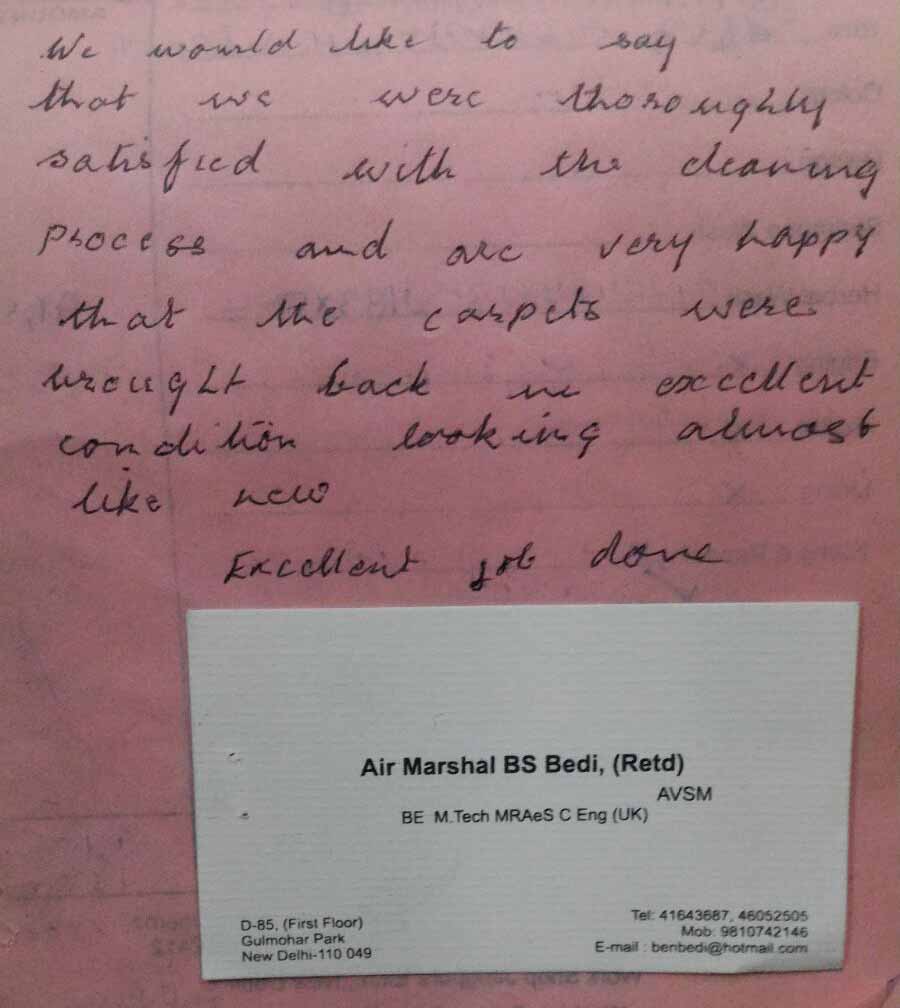 We would like to say
that we were thoroughly
satisfied with the cleaning
process and are very happy
that the carpets were
brought back in excellent
condition looking almost
like new
Excellent job done
Air Marshal BS Bedi, (Retd)
AVSM
BE M.Tech MRAeS C Eng (UK)
D-85, (First Floor)
Gulmohar Park
New Delhi-110 049
Tel: 41643687, 46052505
Mob: 9810742146
E-mail : benbedi@hotmail.com